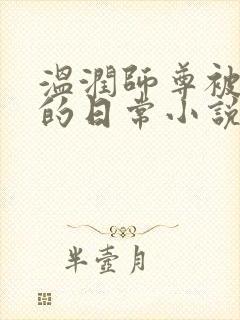 温潤師尊被
的日常小說
半壺月